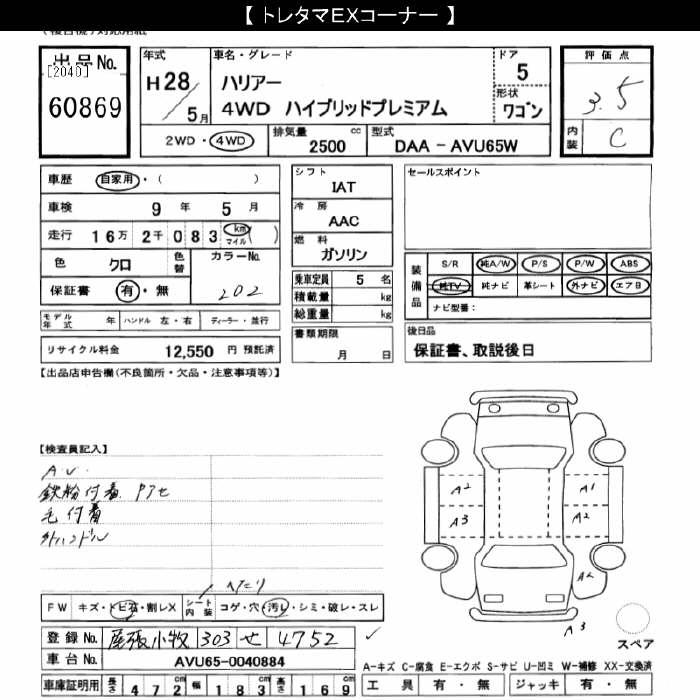 【 トレタマEXコーナー 】
出品No.
[2040]
60869
年式
H28/5月
車名・グレード
ハリアー
4WD ハイブリッドプレミアム
ドア
5
形状
ワゴン
評価点
3.5
内装
C
2WD・4WD
排気量 2500 cc
型式 DAA - AVU65W
車歴 自家用・( )
車検 9 年 5 月
走行 16万 2千 083 km マイル ( )
色 クロ 色替
カラーNo. 202
保証書 有・無
モデル年式 年 ハンドル 左・右 ディーラー・並行
リサイクル料金 12,550 円 預託済
シフト
IAT
冷房
AAC
燃料
ガソリン
乗車定員 5 名
積載量 kg
総重量 kg
書類期限
月 日
セールスポイント
装備品
S/R 純A/W P/S P/W ABS
純TV 純ナビ 革シート 外ナビ エアB
ナビ型番:
後日品
保証書、取説後日
【出品店申告欄(不良箇所・欠品・注意事項等)】
【検査員記入】
鉄粉付着
毛付着
外ハンドル
A2 A1
A3 A2
A2
A3
スペア
FW キズ・トビ石・割レX
シート内装 コゲ・穴・汚レ・シミ・破レ・スレ
登録No. 尾張小牧 303 せ 4752
車台No. AVU65-0040884
車庫証明用 長さ 472cm 幅 183cm 高さ 169cm
A-キズ C-腐食 E-エクボ S-サビ U-凹ミ W-補修 XX-交換済
工具 有・無 ジャッキ 有・無